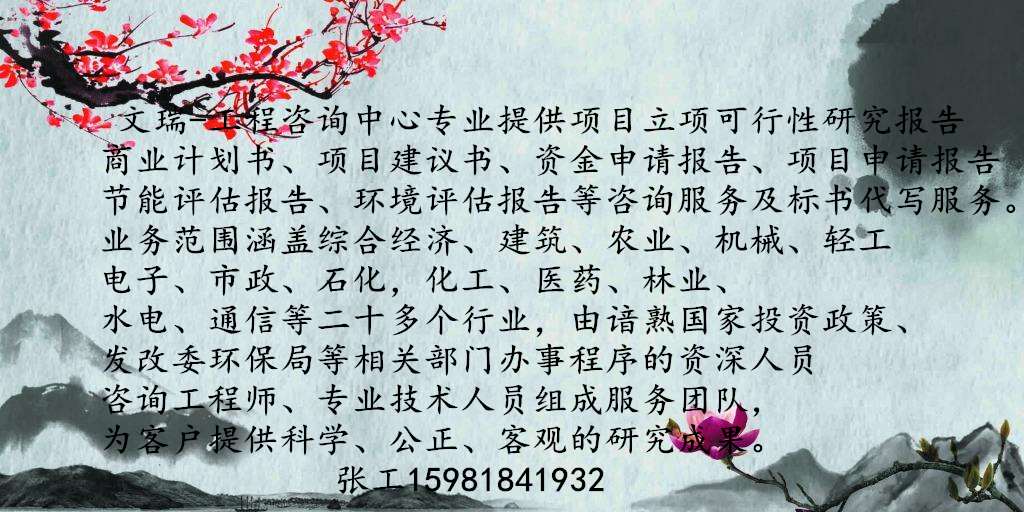 文瑞-工程咨询中心专业提供项目立项可行性研究报告
商业计划书、项目建议书、资金申请报告、项目申请报告
节能评估报告、环境评估报告等咨询服务及标书代写服务。
业务范围涵盖综合经济、建筑、农业、机械、轻工
电子、市政、石化，化工、医药、林业、
水电、通信等二十多个行业，由谙熟国家投资政策、
发改委环保局等相关部门办事程序的资深人员
咨询工程师、专业技术人员组成服务团队，
为客户提供科学、公正、客观的研究成果。
张工15981841932